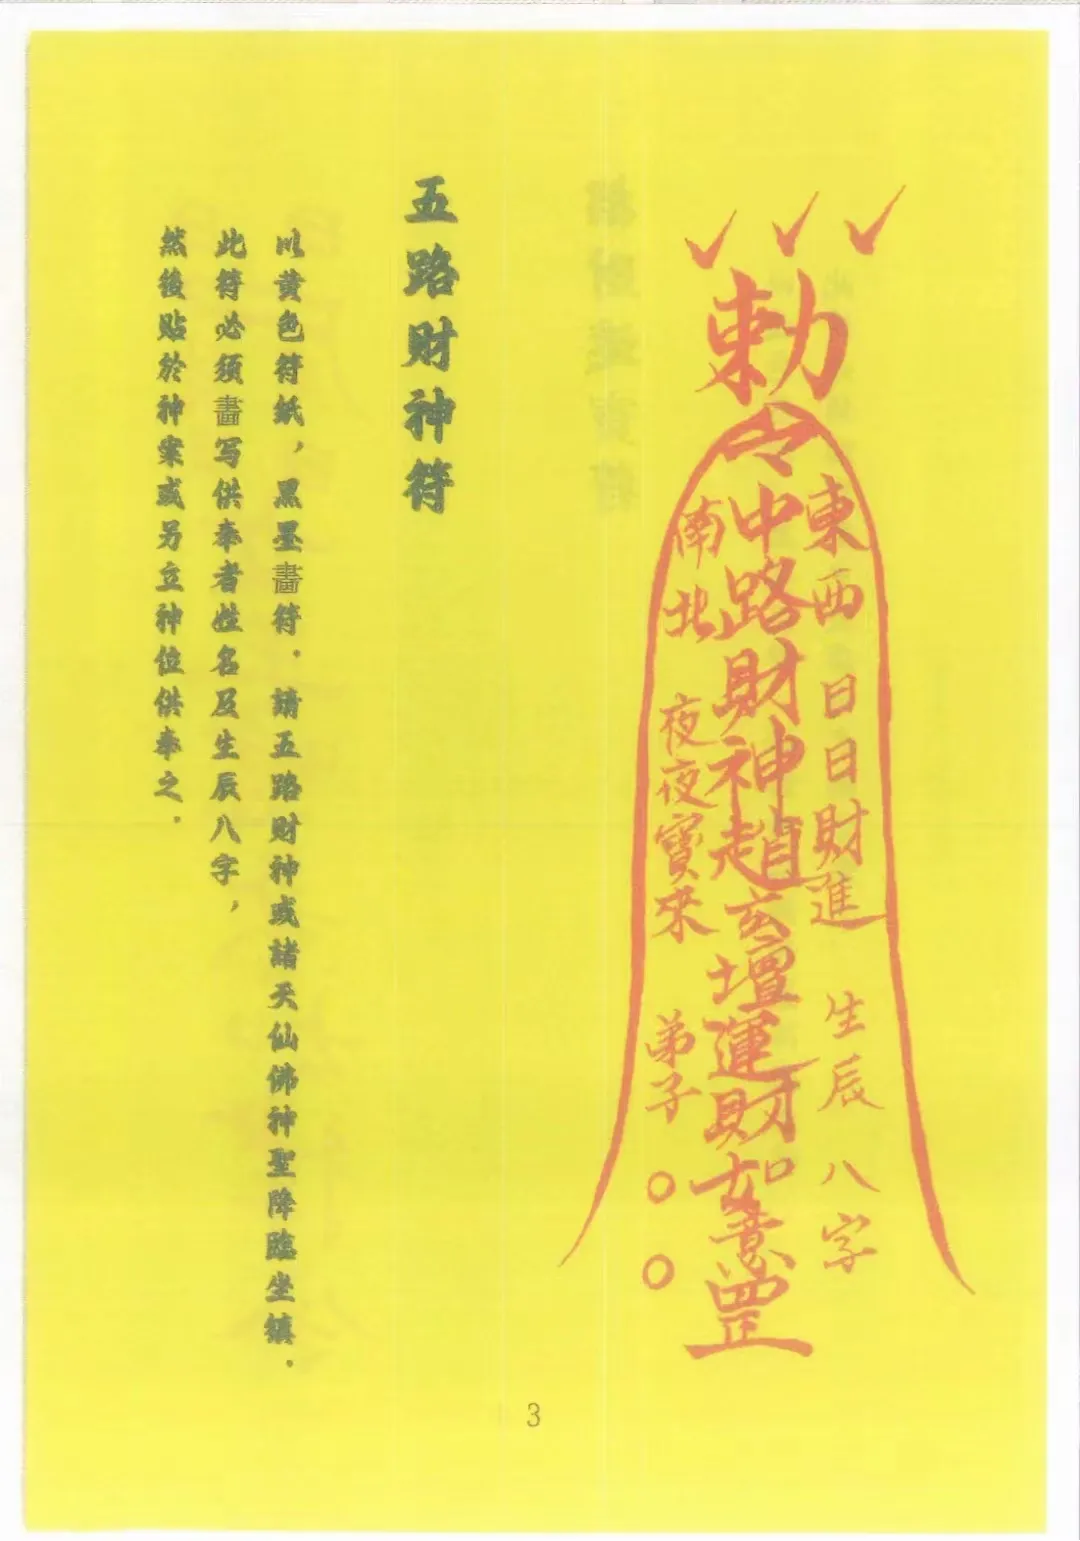 勅令
東西 日日財進 生辰八字
中路財神趙玄壇運財如意罡
南北 夜夜寶來 弟子○○
五路财神符
以黄色符紙，黑墨畵符．請五路財神或諸天仙佛神聖降臨坐鎮．
此符必须畵写供奉者姓名及生辰八字，
然後貼於神案或另立神位供奉之．
3